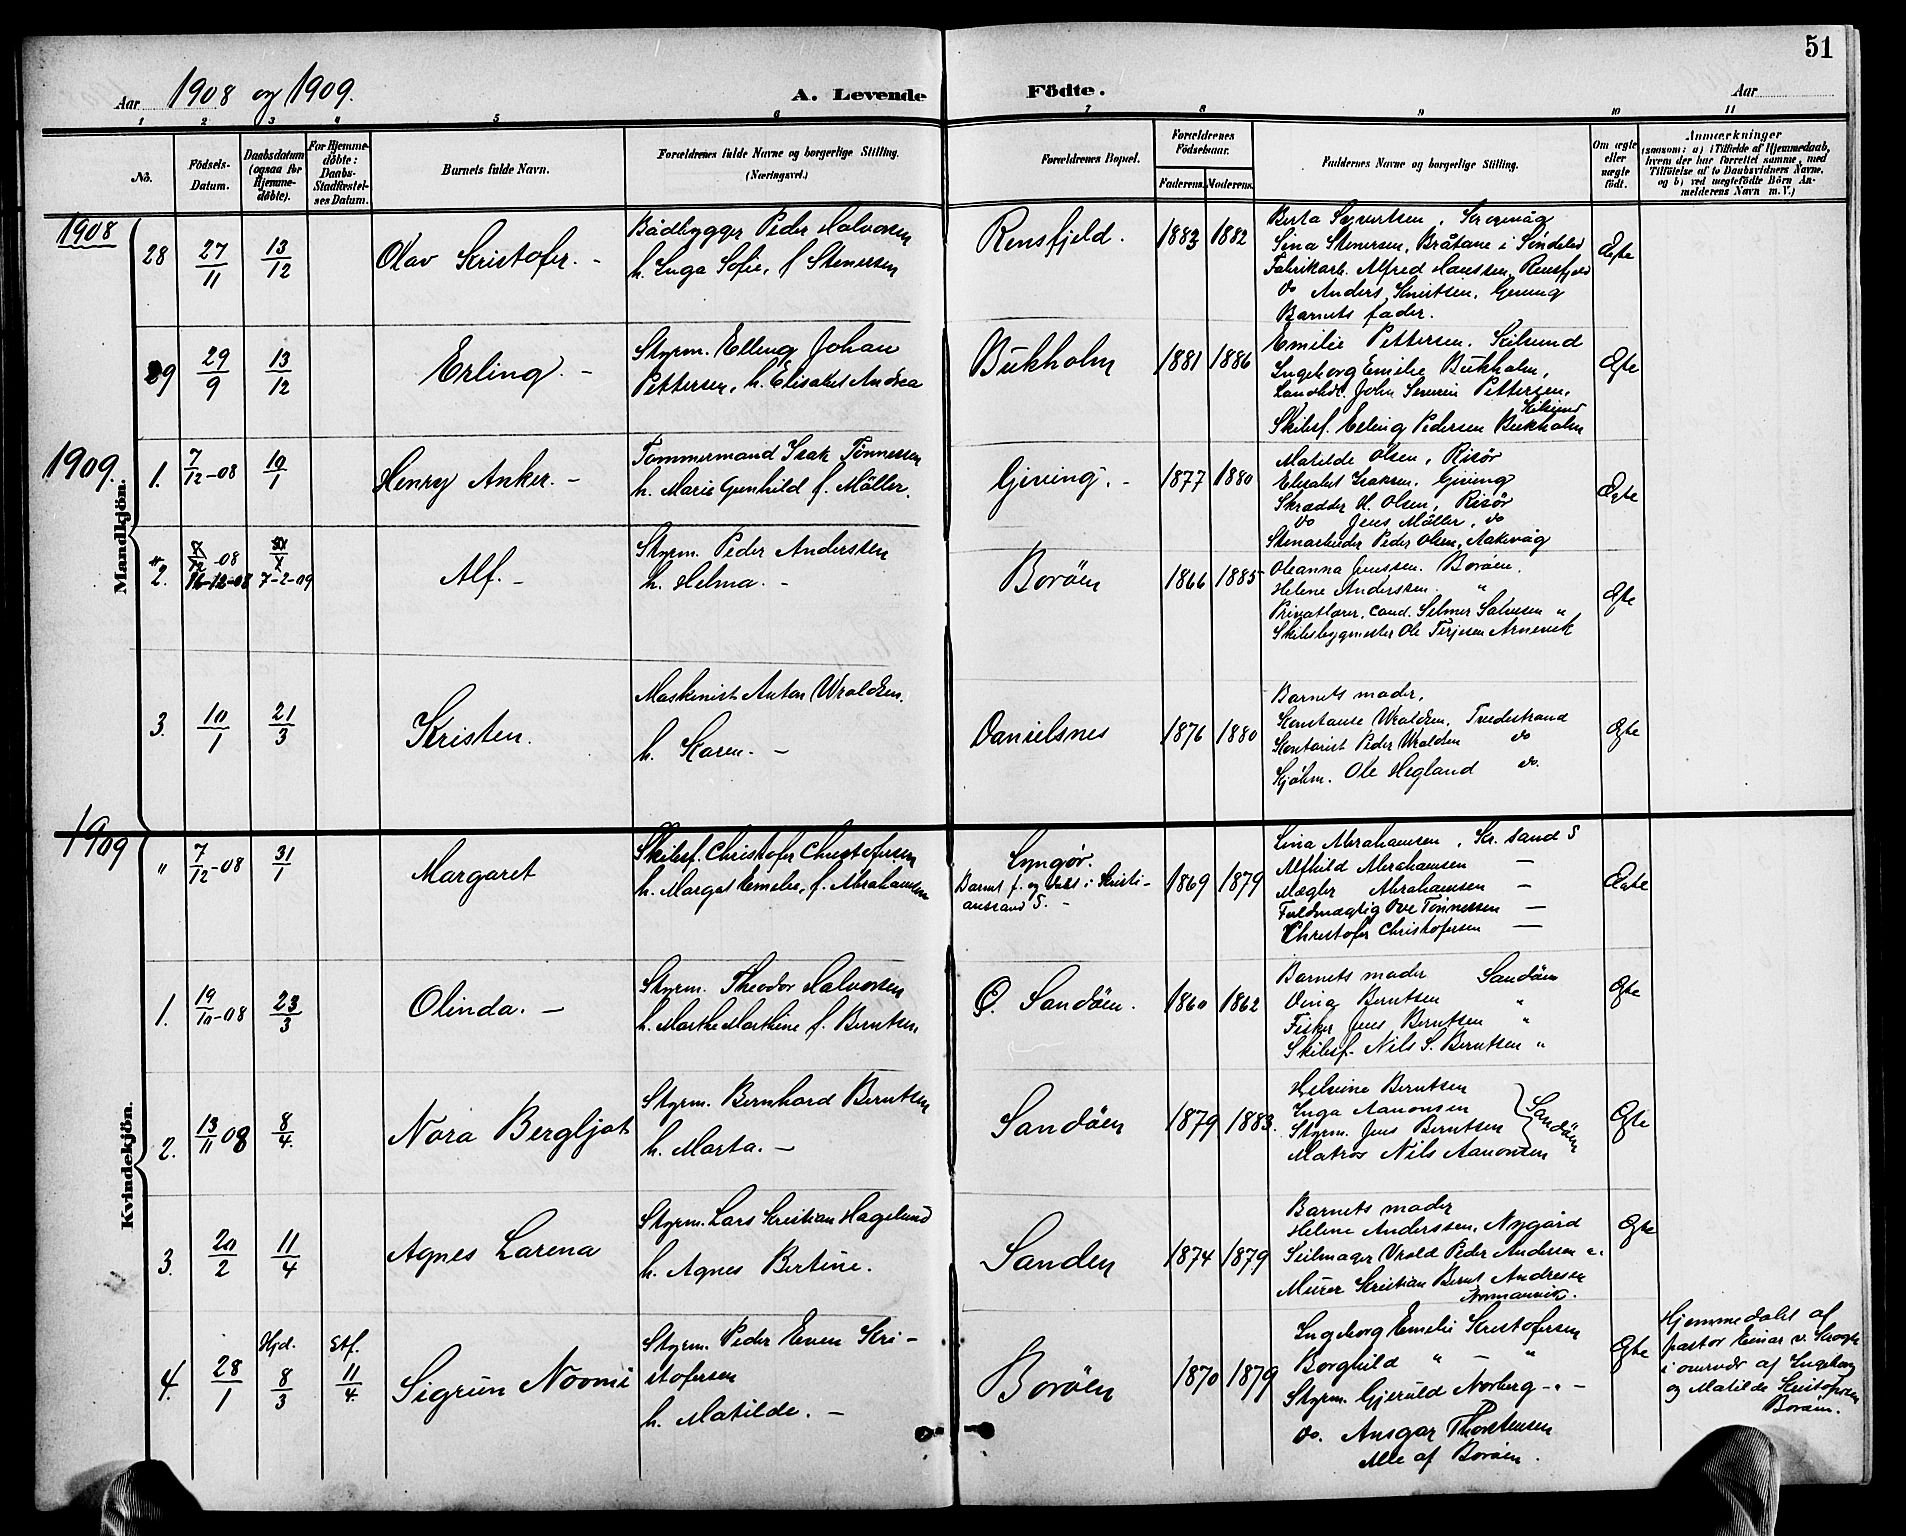 51
Aar 1908 og 1909.
A. Levende Födte.
Aar
1 2 3 4 5 6 7 8 9 10 11
No.
Födsels-Datum.
Daabsdatum (ogsaa for Hjemme-döbte).
For Hjemme-döbte: Daabs-Stadfæstel-ses Datum.
Barnets fulde Navn.
Forældrenes fulde Navne og borgerlige Stilling.
(Næringsvei.)
Forældrenes Bopæl.
Forældrenes Födselsaar.
Faderens. Moderens.
Faddernes Navne og borgerlige Stilling.
Om ægte eller uægte födt.
Anmærkninger
(saasom: a) i Tilfælde af Hjemmedaab, hvem der har forrettet samme, med Tilföielse af to Daabsvidners Navne, og b) ved uægtefödte Börn An-melderens Navn m. V.)
Mandkjön.
1908
28 27/11 13/12 Olav Kristofer. -
Bådbygger Peder Halvorsen
h. Inga Sofie, f. Stenersen
Rensfjeld. 1883 1882
Berta Syvertsen,
Sina Stenersen, Bråtane i Söndeled
Fabrikarb. Alfred Hanssen, Rensfjeld
do Anders Knutsen, Gjeving
Barnets fader.
Ægte
29 29/9 13/12 Erling. -
Styrm. Elling Johan
Pettersen, h. Elisabet Andrea
Bukholm 1881 1886
Emilie Pettersen. Kilsund
Ingeborg Emilie Bukholm,
Landhdl. John Severin Pettersen,
Kilsund
Skibsf. Elling Pedersen Bukholm
Ægte
1909.
1. 7/12-08 10/1 Henry Anker. -
Tømmermand Isak Tønnessen
h. Marie Gunhild f. Möller.
Gjeving. - 1877 1880
Matilde Olsen, Risör
Elisabet Isaksen, Gjeving
Skrædder H. Olsen, Risör
do Jens Möller, do
Stenarbeider Peder Olsen, Aakevåg
Ægte
2. 16-12-08 7-2-09 Alf. -
Styrm. Peder Anderssen
h. Helma. -
Boröen 1866 1885
Oleanna Jenssen. Boröen.
Helene Anderssen. "
Privatlærer, cand. Selmer Salvesen "
Skibsbygmester Ole Terjesen Arnevik
Ægte
3. 10/1 21/3 Kristen.
Maskinist Anton Wroldsen.
h. Karen. -
Danielsnes 1876 1880
Barnets moder,
Konstanse Wroldsen, Tvedestrand
Kontorist Peder Wroldsen do
Kjöbm. Ole Hegland do.
Ægte
Kvindekjön.
1909
" 7/12-08 31/1 Margaret
Skibsf. Christofer Christofersen
h. Margot Emelie, f. Abrahamsen
Lyngör.
Barnet f. og døbt i Kristi-
ansand S. -
1869 1879
Lina Abrahamsen, Kr. sand S
Alfhild Abrahamsen —
Mægler Abrahamsen —
Fuldmægtig Ove Tønnessen —
Christofer Christofersen —
Ægte
1. 19/10-08 23/3 Olinda. -
Styrm. Theodor Halvorsen
h. Marthe Marthine f. Berntsen
Ø. Sandöen. 1860 1862
Barnets moder Sandöen
Berntsen "
Fisker Jens Berntsen "
Skibsf. Nils S. Berntsen "
Ægte
2. 13/11 08 8/4. Nora Bergljot
Styrm. Bernhard Berntsen
h. Marta. -
Sandöen 1879 1883.
Helvine Berntsen
Inga Aanonsen
Styrm. Jens Berntsen
Matros Nils Aanonsen
Sandöen
Ægte
3. 20/2 11/4 Agnes Larena
Styrm. Lars Kristian Hagelund
h. Agnes Bertine.
Sanden 1874 1879
Barnets moder
Helene Anderssen, Nygård
Seilmager Vrold Peder Andersen
Murer Kristian Bernt Andresen
Normannvik.
Ægte
Hjd. Stf.
4. 28/1 8/3 11/4. Sigrun Noomi
Styrm. Peder Even Kri-
stofersen
h. Matilde. -
Boröen 1870 1879
Ingeborg Emelie Kristofersen
Borghild " — "
Styrm. Gjeruld Norberg - " -
do. Ansgar Thorstensen
Alle af Boröen.
Ægte
Hjemmedøbt af
pastor Einar v. Krogh
i overvær af Ingeborg
og Matilde Kristofersen
Boröen.